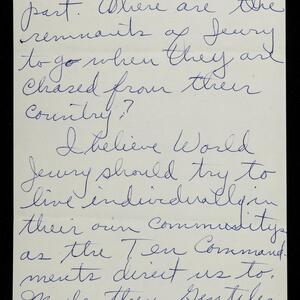 part. Where are the
remnants of Jewry
to go when they are
chased from their
country?
I believe World
Jewry should try to
live individually in
their own communitys
as the Ten Command-
ments direct us to.
they Gentiles